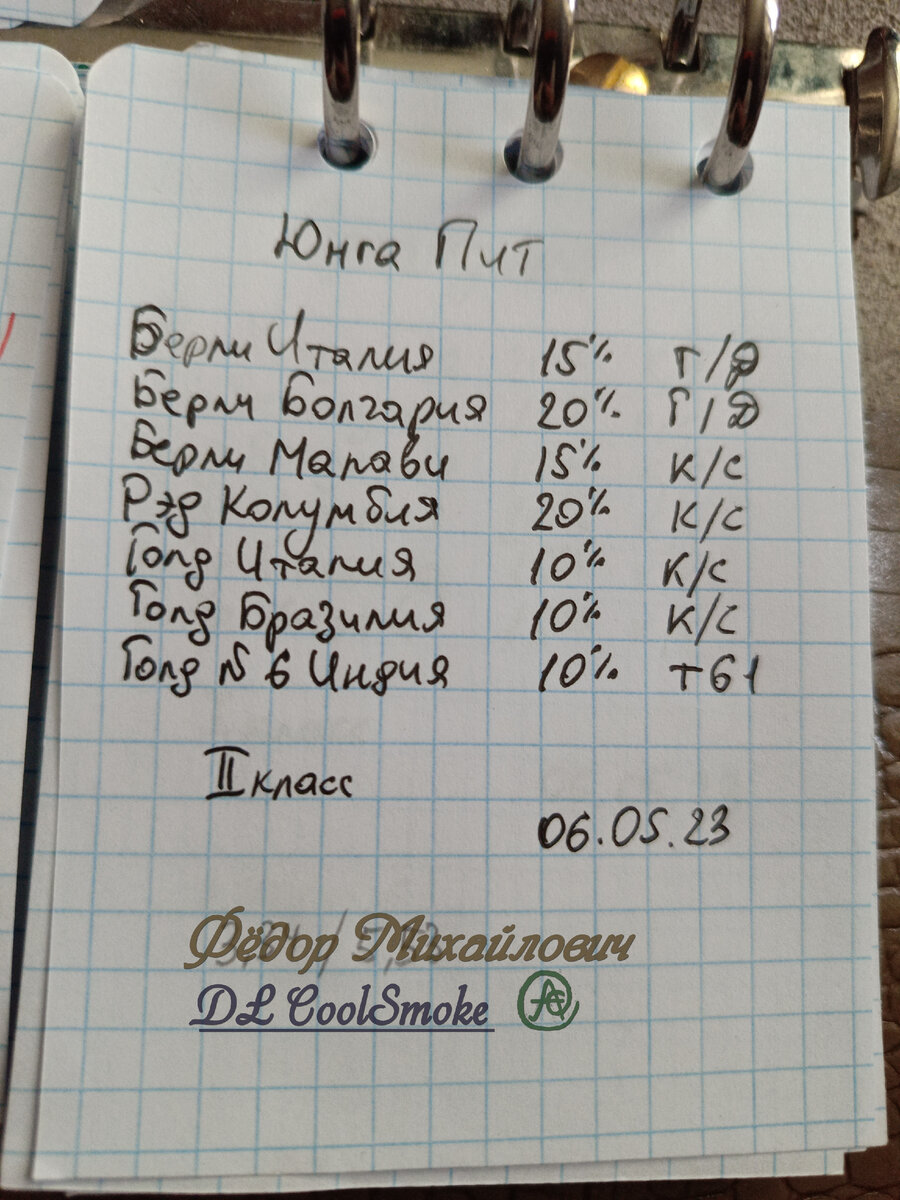 Юнга Пит
Берли Италия 15% Г/Д
Берли Болгария 20% Г/Д
Берли Малави 15% К/С
Рэд Колумбия 20% К/С
Голд Италия 10% К/С
Голд Бразилия 10% К/С
Голд № 6 Индия 10% Т61
II класс
06.05.23
Фёдор Михайлович
DL CoolSmoke